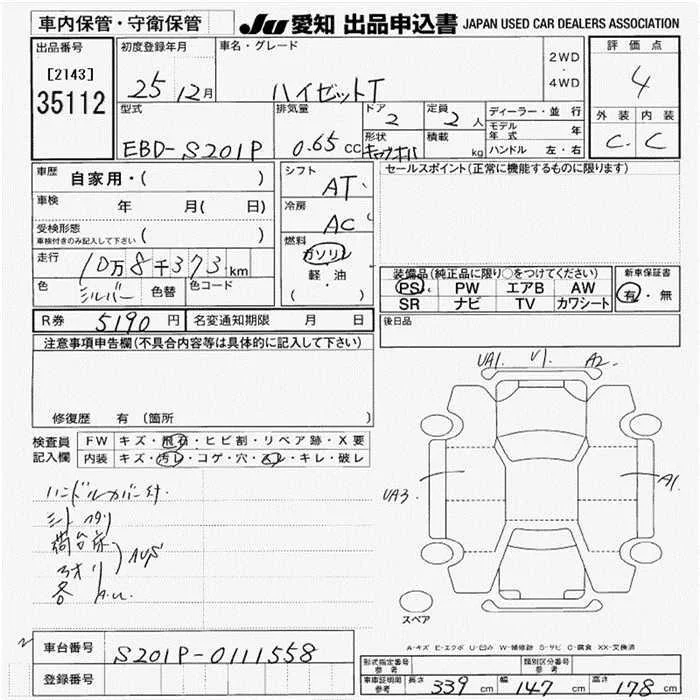 車内保管・守衛保管
JU 愛知 出品申込書 JAPAN USED CAR DEALERS ASSOCIATION
出品番号
[2143]
35112
初度登録年月
25 12月
車名・グレード
ハイゼットT
2WD
・
4WD
評価点
4
外装 内装
C. C
型式
EBD-S201P
排気量
0.65 CC
ドア
2
定員
2 人
形状
積載
kg
ディーラー・並行
モデル年式 年
ハンドル 左・右
車歴
自家用・( )
車検
年 月( 日)
受検形態
車検付きのみ記入して下さい ( )
走行
10万8千373km
色
シルバー
色替
色コード
シフト
AT
冷房
AC
燃料
ガソリン
軽・油
( )
セールスポイント(正常に機能するものに限ります)
装備品(純正品に限り○をつけてください)
PS PW エアB AW
SR ナビ TV カワシート
新車保証書
有・無
R券 5190 円 名変通知期限 月 日
後日品
注意事項申告欄(不具合内容等は具体的に記入して下さい)
修復歴 有 (箇所 )
検査員記入欄
FW キズ・飛石・ヒビ割・リペア跡・X要
内装 キズ・汚レ・コゲ・穴・スレ・キレ・破レ
ハンドルカバー付
荷台床
各 A.U.
UA1. V1. A2.
UA3
A1.
スペア
A-キズ E-エクボ U-凹み W-補修跡 S-サビ C-腐食 XX-交換済
車台番号 S201P-0111558
登録番号
形式指定番号 参考
類別区分番号 参考
車庫証明用 参考 長さ 339 cm 幅 147 cm 高さ 178 cm